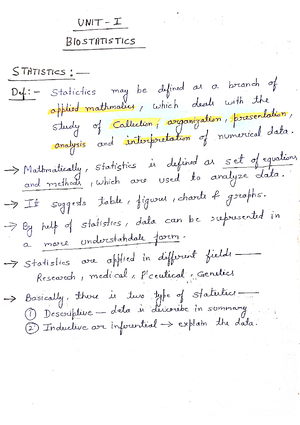 UNIT - I
BIOSTATISTICS
STATISTICS : —
Def :- Statistics may be defined as a branch of
applied mathmatics, which deals with the
study of Collection, organization, presentation,
analysis and interpretation of numerical data.
→ Mathmatically, statistics is defined as set of equations
and methods, which are used to analyze data.
→ It suggests table, figures, charts & graphs.
→ By help of statistics, data can be represented in
a more understandable form.
→ Statistics are applied in different fields —
Research, medical, P'ceutical, Genetics
→ Basically, there is two type of statistics —
① Descriptive — data is describe in summary
② Inductive or inferential → explain the data.